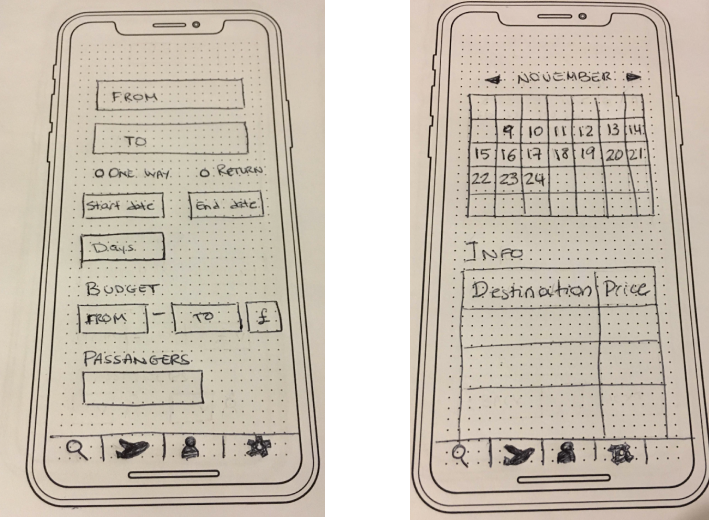 FROM
TO
ONE WAY RETURN
Start date End date
Days
BUDGET
FROM - TO £
PASSANGERS
NOVEMBER
9 10 11 12 13 14
15 16 17 18 19 20 21
22 23 24
INFO
Destination Price